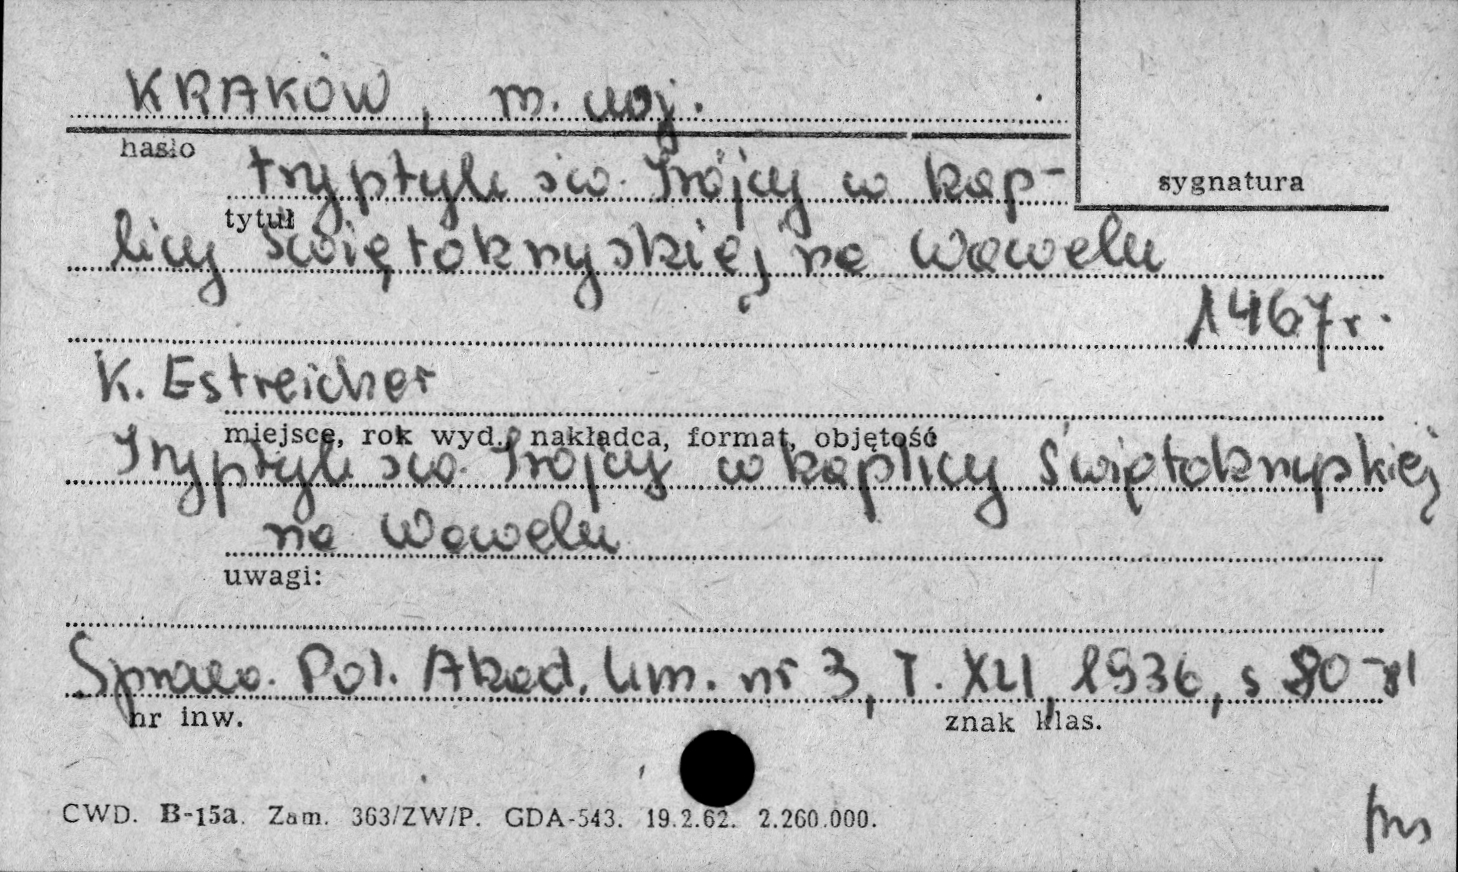 KRAKÓW, m. woj.
hasło
sygnatura
tryptyk św. Trójcy w kap-
tytuł
licy Świętokrzyskiej na Wawelu
1467 r.
K. Estreicher
miejsce, rok wyd., nakładca, format, objętość
Tryptyk św. Trójcy w kaplicy Świętokrzyskiej
na Wawelu
uwagi:
Spraw. Pol. Akad. Um. nr 3, T. XLI, 1936, s 80-81
nr inw.
znak klas.
CWD. B-15a. Zam. 363/ZW/P. GDA-543. 19.2.62. 2.260.000.